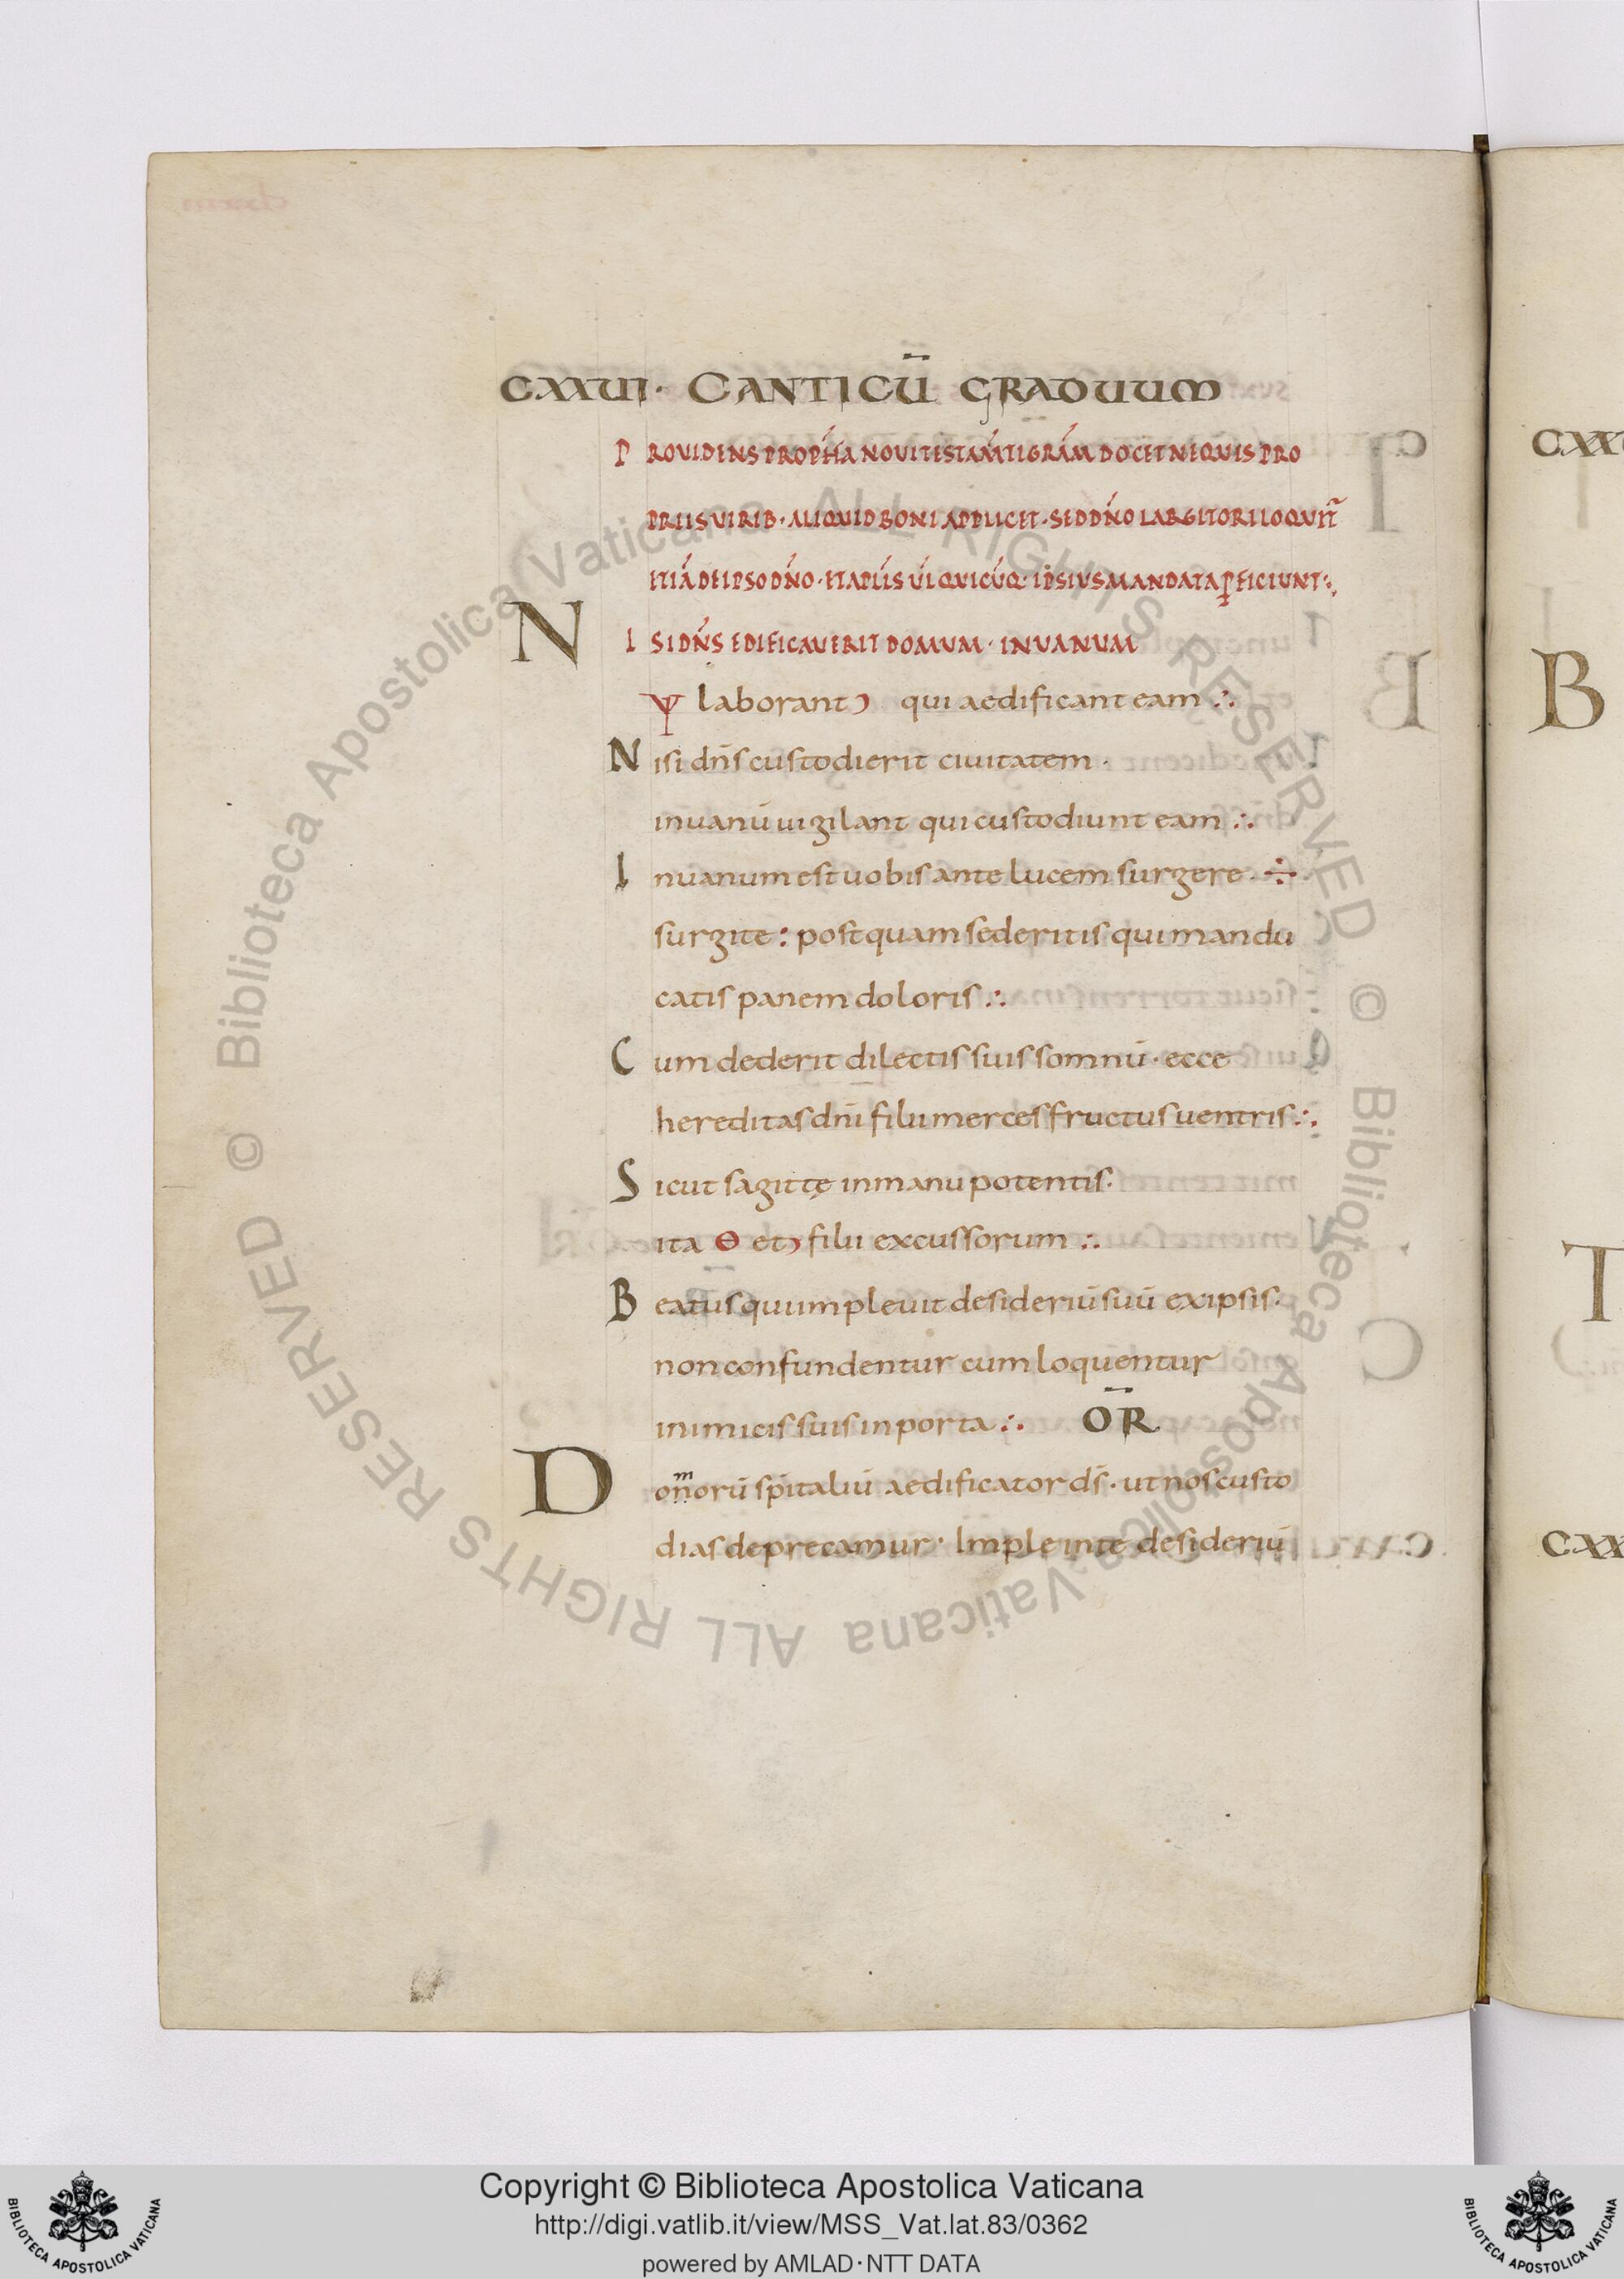 CXXUI · CANTICŪ GRADUUM
PROVIDENS PROPHA NOVI TESTAMTI GRAM DOCET NE QUIS PRO
PRIIS VIRIB · ALIQUID BONI APPLICET · SED DNO LARGITORI LOQUNT
ETIA DE IPSO DNO · ET APLIS UL QUICUQ · IPSIUS MANDATA PFICIUNT :,
NISI DNS EDIFICAVERIT DOMUM · IN VANUM
laborant qui aedificant eam ∴
Nisi dns custodierit ciuitatem ·
in uanū uigilant qui custodiunt eam ∴
Inuanum est uobis ante lucem surgere · ÷
surgite : postquam sederitis qui mandu
catis panem doloris ∴
Cum dederit dilectis suis somnū · ecce
hereditas dni filii merces fructus uentris :.
Sicut sagittę in manu potentis ·
ita Ө et filii excussorum ∴
Beatus qui impleuit desideriū suū ex ipsis ·
non confundentur cum loquentur
inimicis suis in porta ∴ OR
Donorū spitaliū aedificator ds · ut nos custo
m
dias deprecamur · Imple in te desideriū
CXX
B
T
CXX
Biblioteca Apostolica Vaticana ALL RIGHTS RESERVED © Biblioteca Apostolica Vaticana ALL RIGHTS RESERVED ©
Copyright © Biblioteca Apostolica Vaticana
http://digi.vatlib.it/view/MSS_Vat.lat.83/0362
powered by AMLAD · NTT DATA
BIBLIOTECA APOSTOLICA VATICANA
BIBLIOTECA APOSTOLICA VATICANA